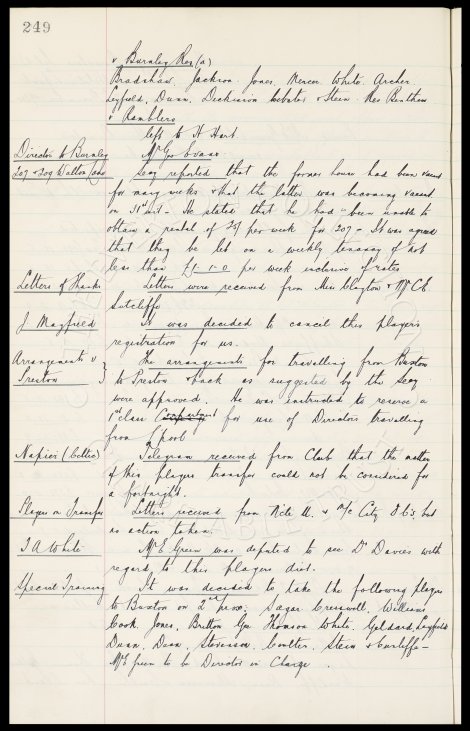 249
v Burnley Res (a)
Bradshaw. Jackson. Jones. Mercer. White. Archer.
Leyfield. Dunn. Dickinson Webster & Stein. Res Renthem
v Ramblers
left to H Hart
Director to Burnley
Mr Geo Evans
207 & 209 Walton Lane
Secy reported that the former house had been vacant
for many weeks & that the latter was becoming vacant
on 31st inst - He stated that he had been unable to
obtain a rental of 25/ per week for 207 - It was agreed
that they be let on a weekly tenancy of not
less than £1-1-0 per week inclusive of rates
Letters of Thanks
Letters were received from Mrs Clayton & Mr C E
Sutcliffe
J Mayfield
It was decided to cancel this players
registration for us.
Arrangements v Preston
The arrangements for travelling from Buxton
to Preston & back as suggested by the Secy
were approved. He was instructed to reserve a
1st class for use of Directors travelling
from L'pool
Napier (Celtic)
Telegram received from Club that the matter
of this players transfer could not be considered for
a fortnight.
Players on Transfer
Letters received from Ncle U. & M/c City F.C's, but
no action taken.
T A White
Mr E Green was deputed to see Dr Davies with
regard to this players diet.
Special Training
It was decided to take the following players
to Buxton on 2nd prox. Sagar Cresswell. Williams
Cook. Jones. Britton Gee Thomson White. Geldard. Leyfield
Dunn. Dean. Stevenson. Coulter. Stein & Cunliffe -
Mr E Green to be Director in Charge.